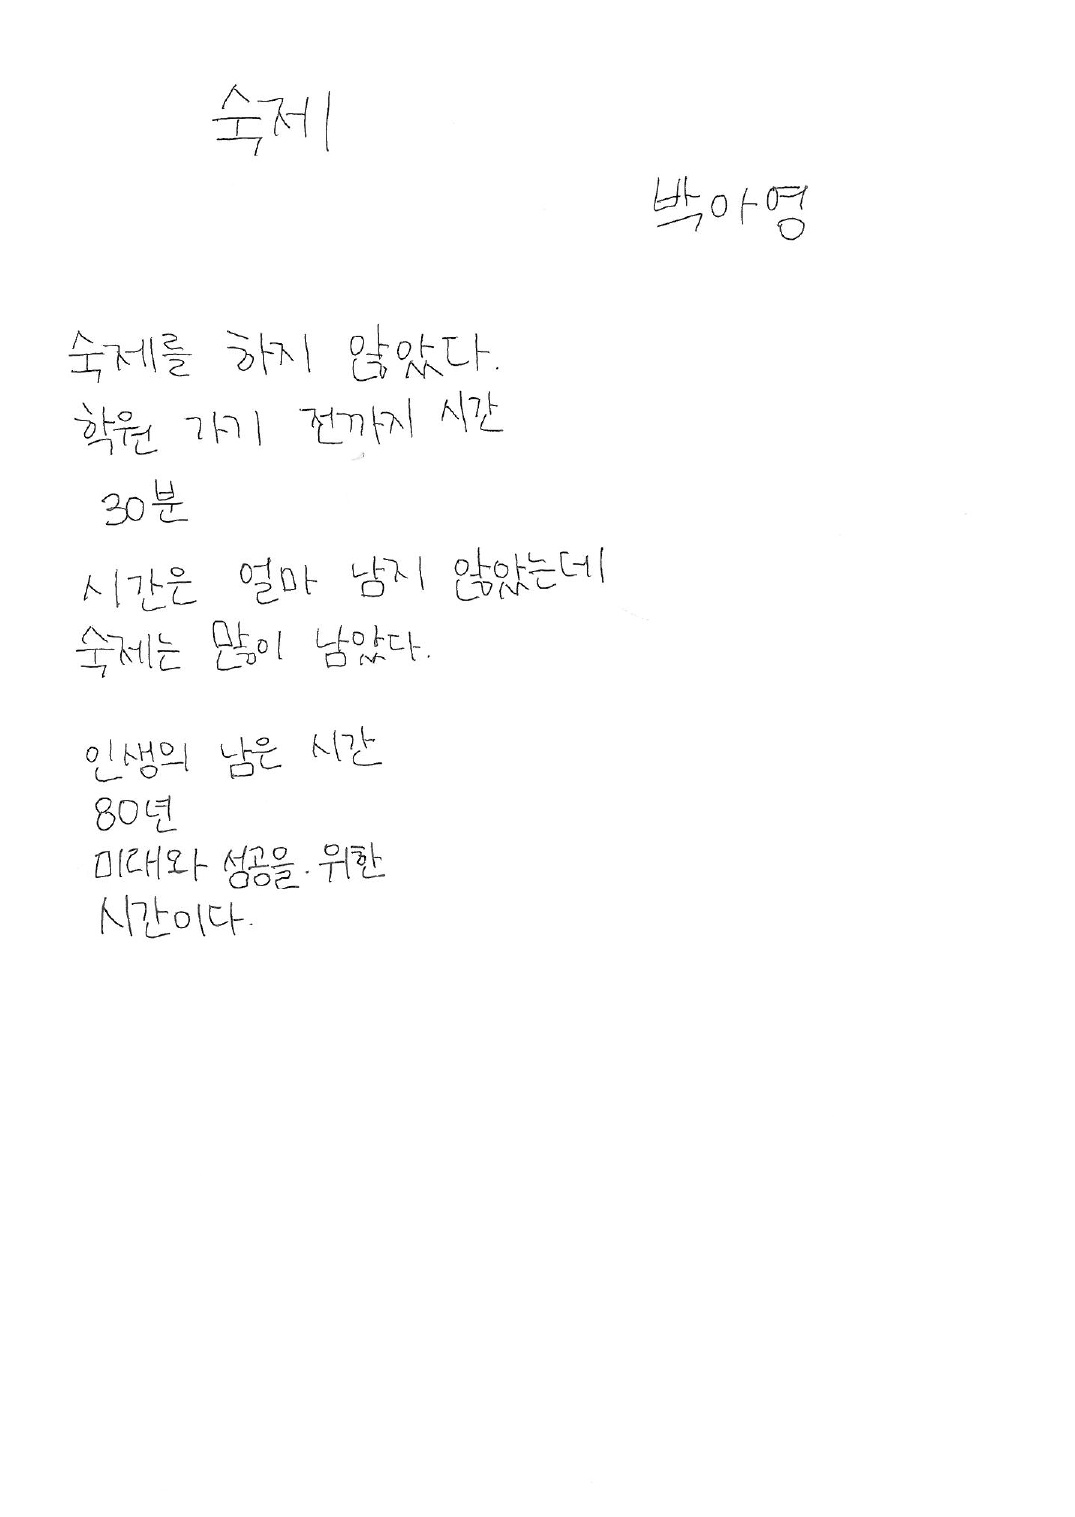 숙제
박아영
숙제를 하지 않았다.
학원 가기 전까지 시간
30분
시간은 얼마 남지 않았는데
숙제는 많이 남았다.
인생의 남은 시간
80년
미래와 성공을 위한
시간이다.